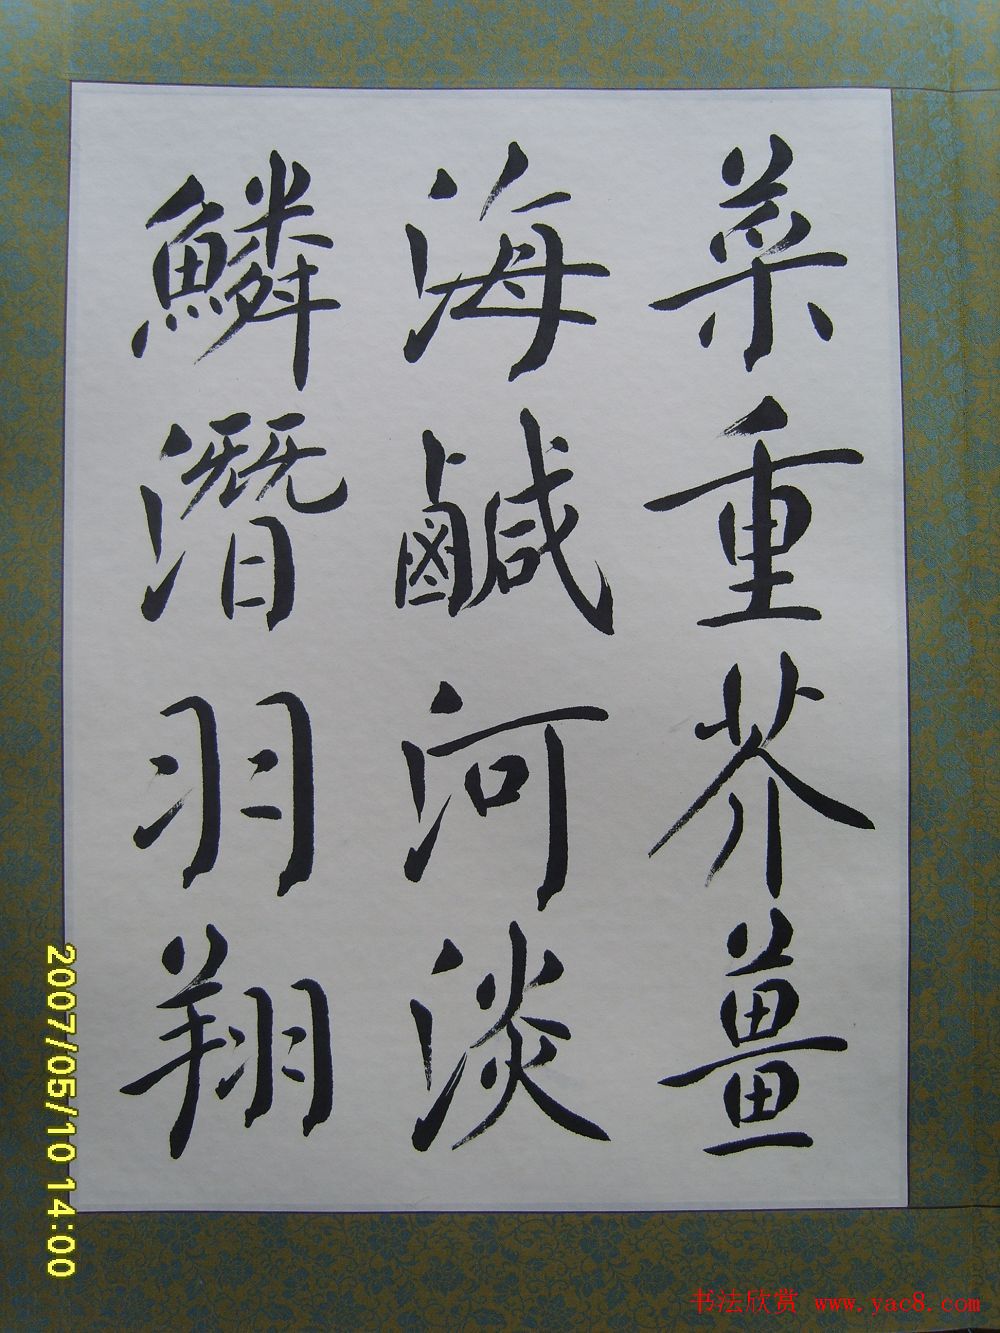 菜重芥薑
海鹹河淡
鱗潛羽翔
2007/05/10 14:00
书法欣赏 www.yac8.com